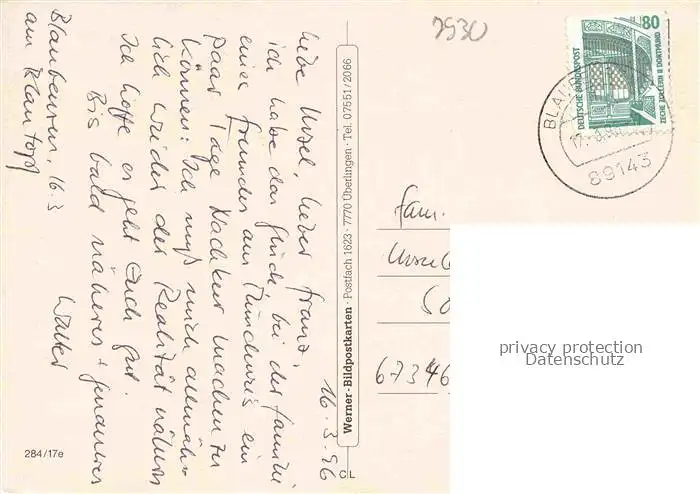 16.3.96
Liebe Ursel, lieber Franz,
ich habe das Glück, bei der Familie
einer Freundes aus Münchweis ein
paar Tage Nachkur machen zu
können. Ich muß mich allmäh-
lich wieder der Realität nähern
Ich hoffe es geht Euch gut.
Bis bald näheres + genaueres
Walter
Blaubeuren, 16.3
am Blautopf
284/17e
CL
Werner-Bildpostkarten · Postfach 1623 · 7770 Überlingen · Tel. 07551/2066
7930
DEUTSCHE BUNDESPOST
80
ZECHE ZOLLERN II DORTMUND
BLAU
89143
Fam.
Ursel
67346
privacy protection
Datenschutz